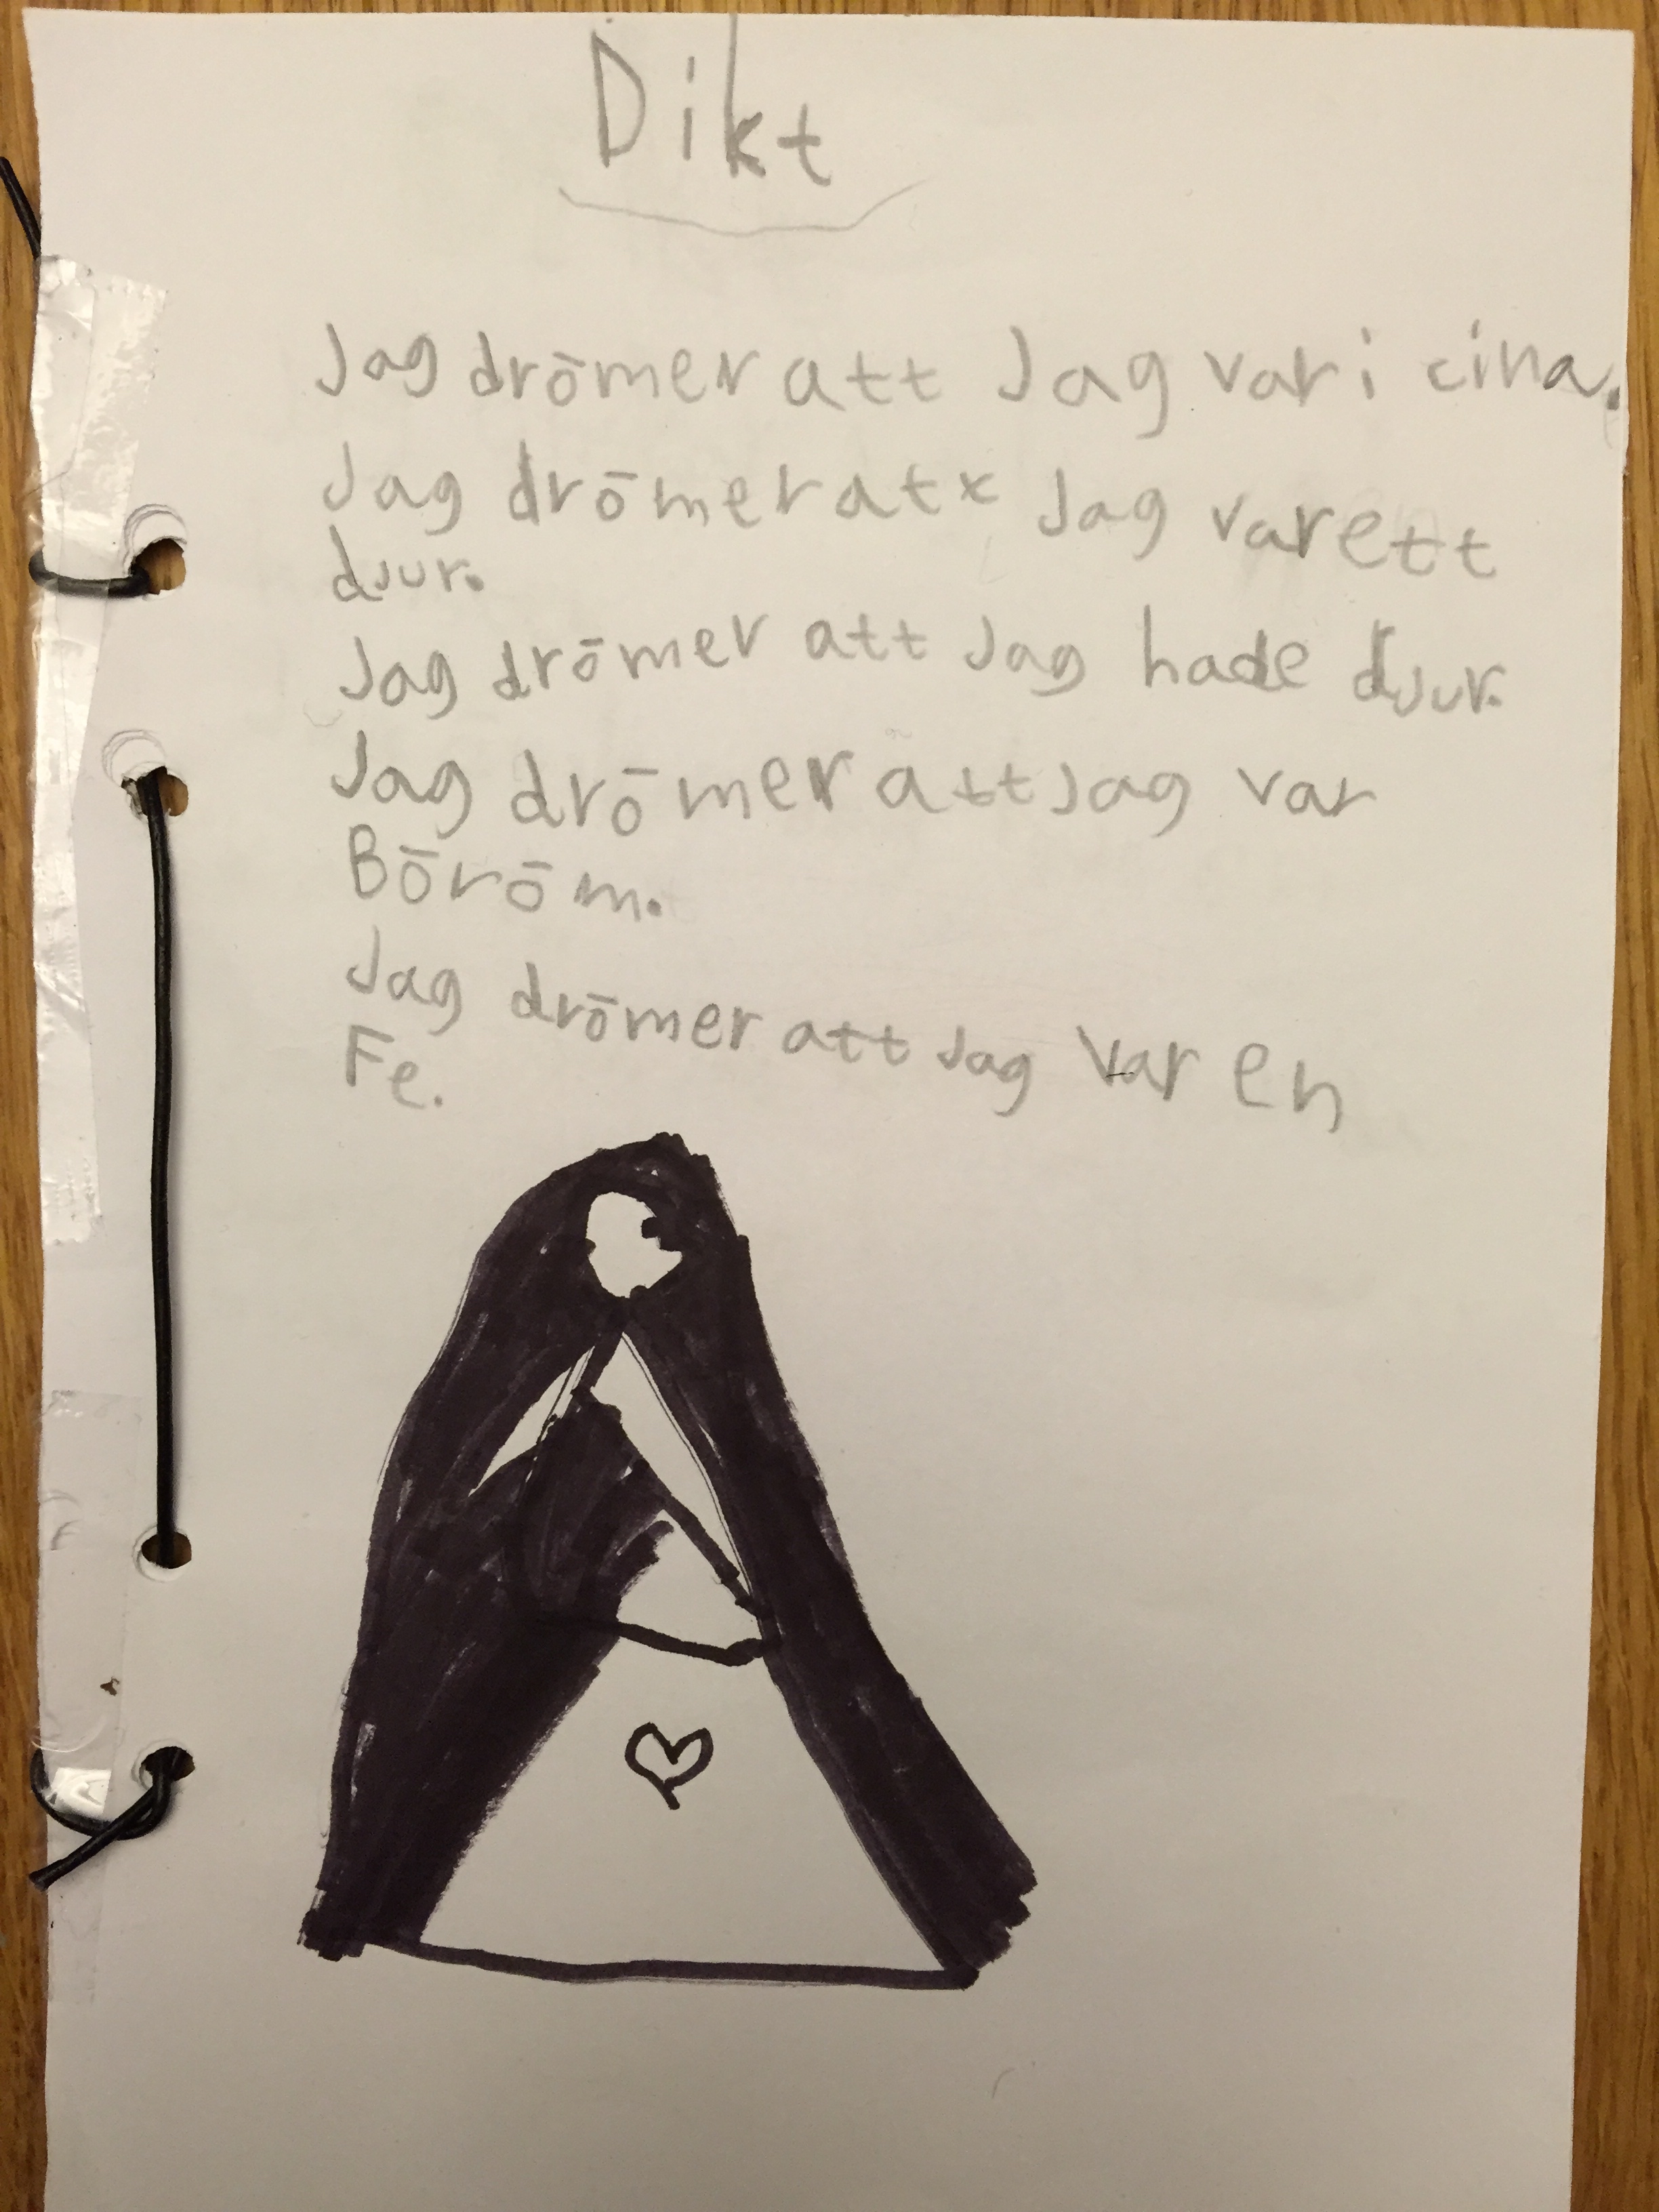 Dikt
Jag drömer att Jag var i cina.
Jag drömer att Jag var ett
djur.
Jag drömer att Jag hade djur.
Jag drömer att Jag var
Böröm.
Jag drömer att Jag var en
Fe.